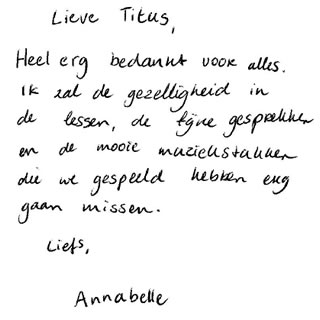 Lieve Titus,
Heel erg bedankt voor alles.
Ik zal de gezelligheid in
de lessen, de fijne gesprekken
en de mooie muziekstukken
die we gespeeld hebben erg
gaan missen.
Liefs,
Annabelle